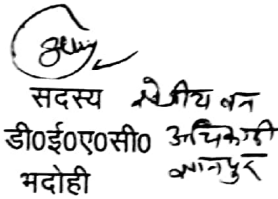 सदस्य क्षेत्रीय वन
डी0ई0ए0सी0 अधिकारी
भदोही ज्ञानपुर